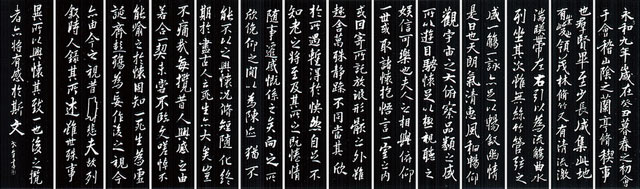 永和九年歲在癸丑暮春之初會
于會稽山陰之蘭亭修禊事
也群賢畢至少長咸集此地
有崇山峻領茂林修竹又有清流激
湍映帶左右引以為流觴曲水
列坐其次雖無絲竹管弦之
盛一觴一詠亦足以暢敘幽情
是日也天朗氣清惠風和暢仰
觀宇宙之大俯察品類之盛
所以遊目騁懷足以極視聽之
娛信可樂也夫人之相與俯仰
一世或取諸懷抱悟言一室之內
或因寄所託放浪形骸之外雖
趣舍萬殊靜躁不同當其欣
於所遇暫得於己快然自足不
知老之將至及其所之既惓情
隨事遷感慨係之矣向之所
欣俛仰之間以為陳迹猶不
能不以之興懷況修短隨化終
期於盡古人云死生亦大矣豈
不痛哉每攬昔人興感之由
若合一契未嘗不臨文嗟悼不
能喻之於懷固知一死生為虛
誕齊彭殤為妄作後之視今
亦由今之視昔悲夫故列
敘時人錄其所述雖世殊事
異所以興懷其致一也後之攬
者亦將有感於斯文